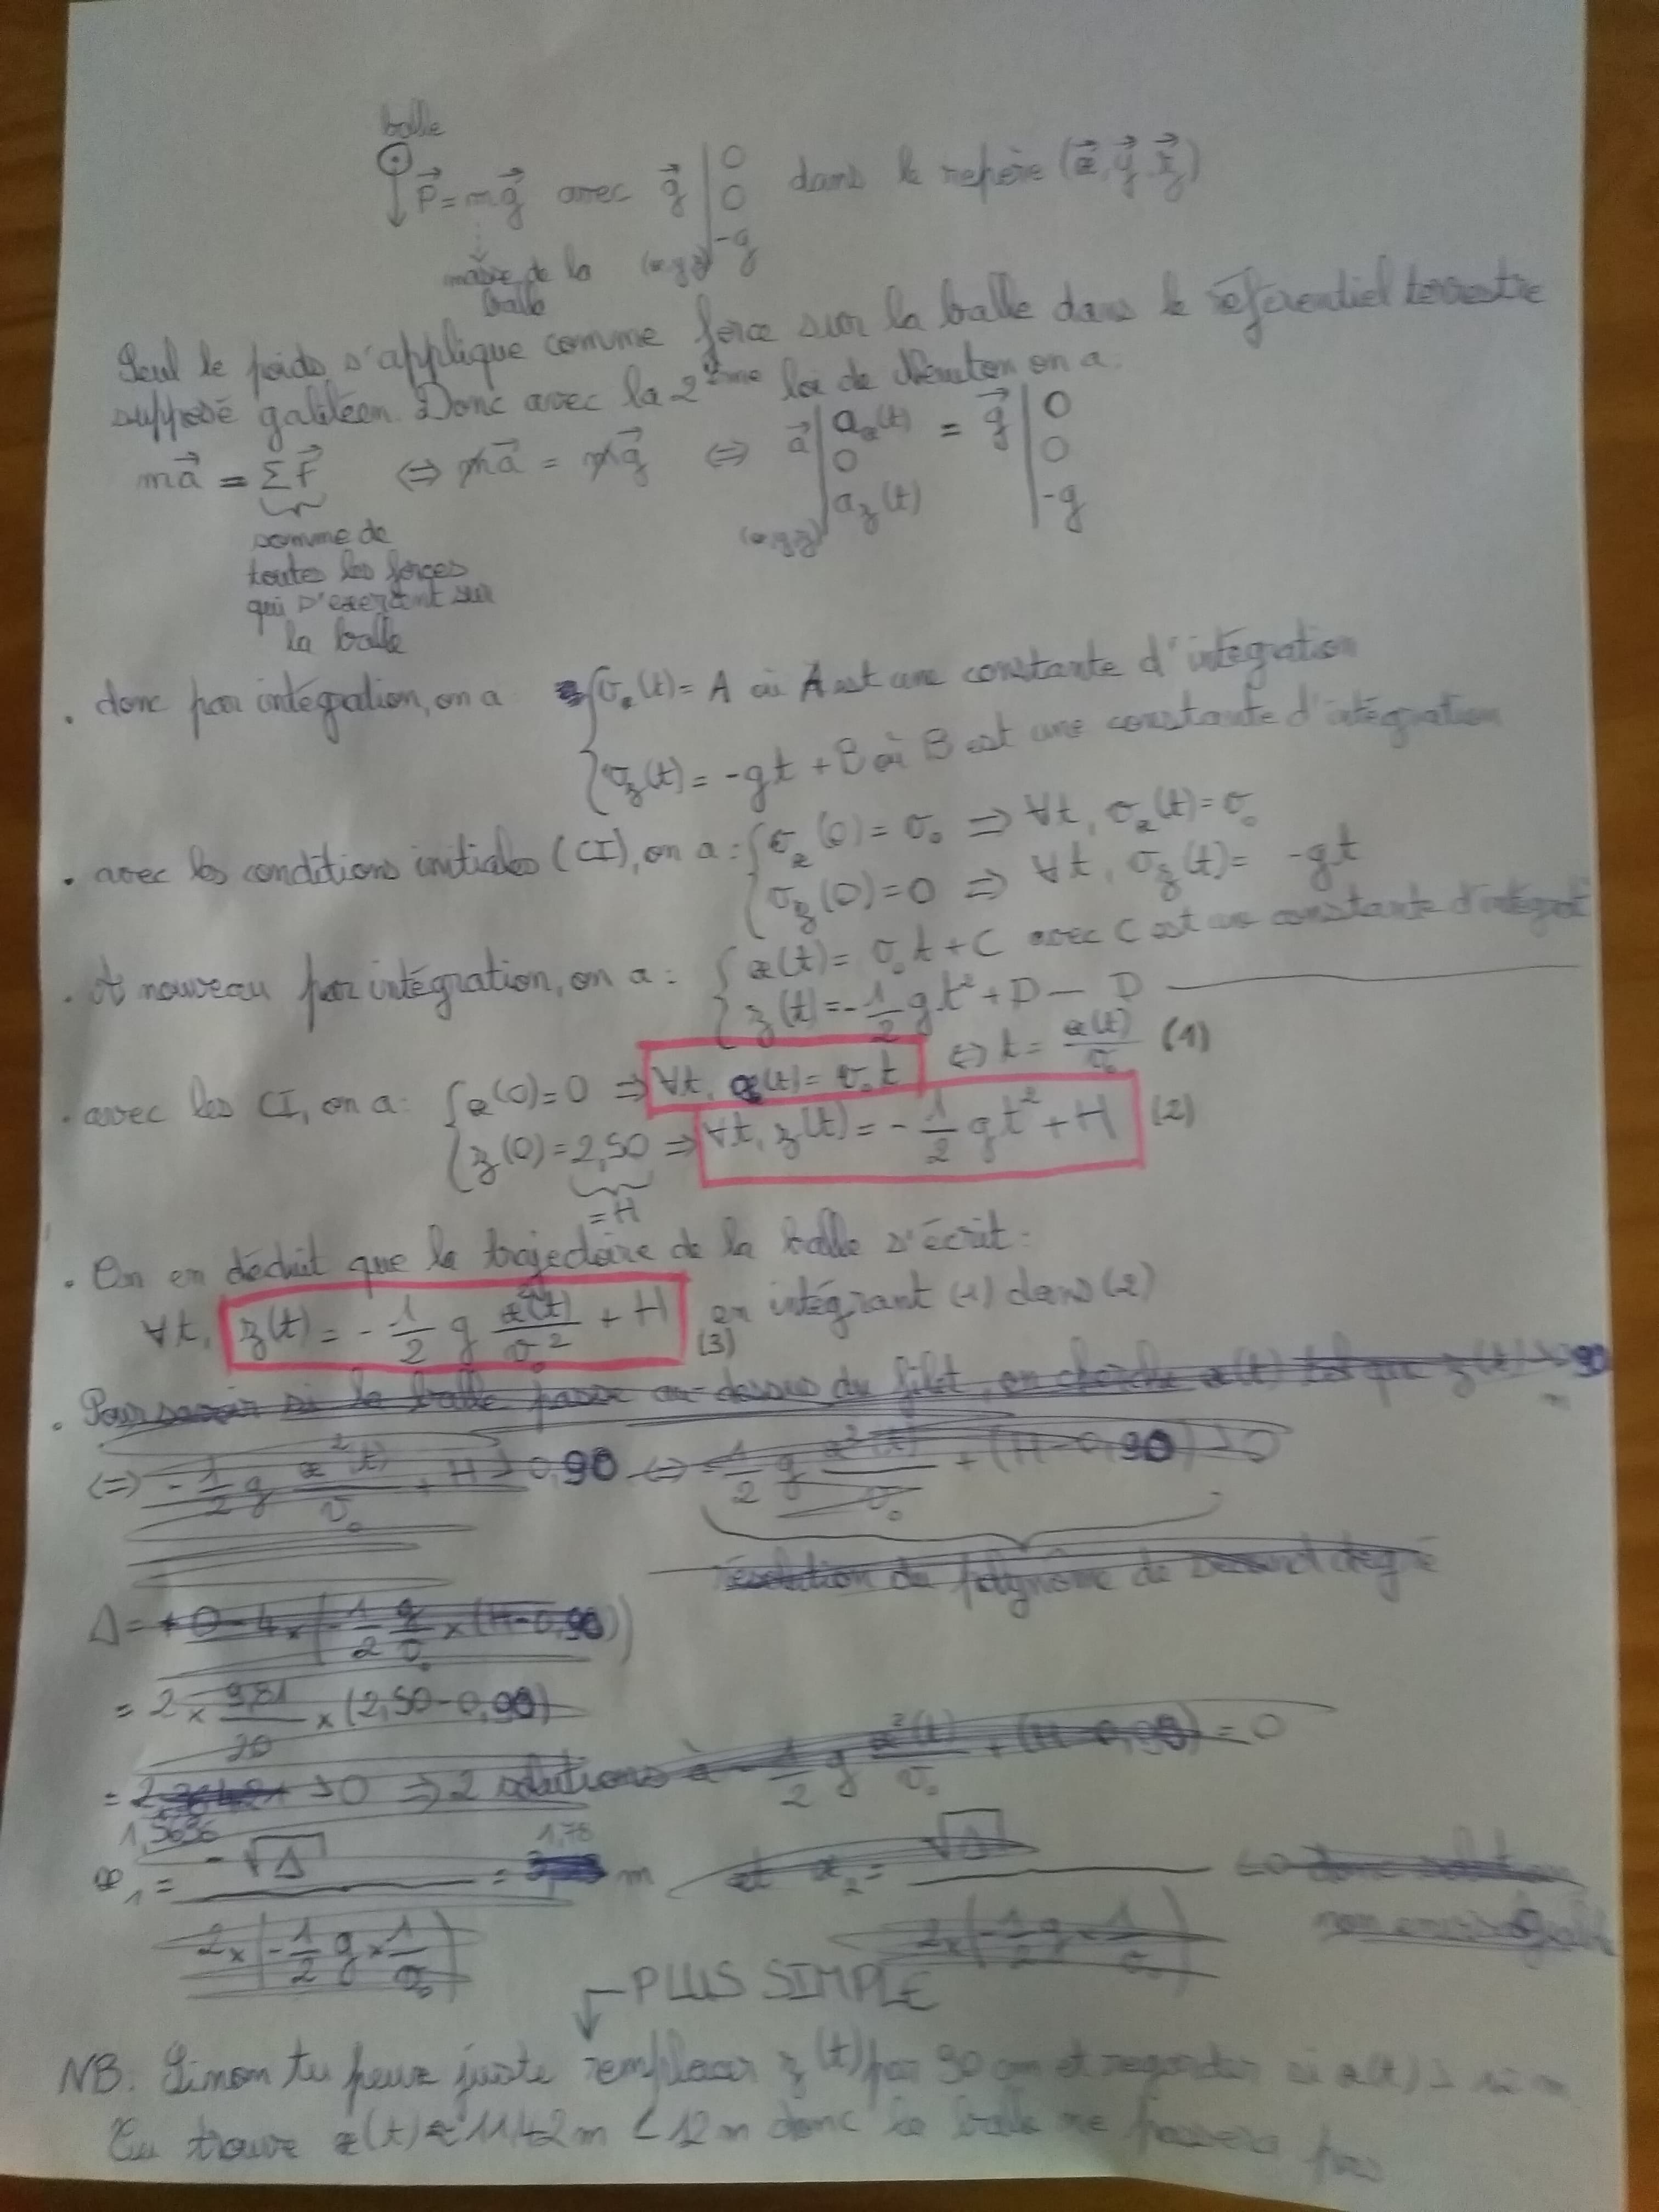 balle
P⃗ = mg⃗ avec g⃗ | 0 0 -g (x,y,z) dans le repère (x⃗, y⃗, z⃗)
masse de la
balle
Seul le poids s'applique comme force sur la balle dans le référentiel terrestre
supposé galiléen. Donc avec la 2ème loi de Newton on a:
ma⃗ = ΣF⃗ ⇔ ma⃗ = mg⃗ ⇔ a⃗ | ax(t) 0 az(t) (x,y,z) = g⃗ | 0 0 -g
somme de
toutes les forces
qui s'exercent sur
la balle
. donc par intégration, on a { vx(t) = A où A est une constante d'intégration
{ vz(t) = -gt + B où B est une constante d'intégration
. avec les conditions initiales (CI), on a : { vx(0) = v₀ ⇒ ∀t, vx(t) = v₀
{ vz(0) = 0 ⇒ ∀t, vz(t) = -gt
. A nouveau par intégration, on a : { x(t) = v₀t + C avec C est une constante d'intégrat
{ z(t) = -1/2 gt² + D — D —
. avec les CI, on a: { x(0) = 0 ⇒ ∀t, x(t) = v₀t ⇔ t = x(t)/v₀ (1)
{ z(0) = 2,50 ⇒ ∀t, z(t) = -1/2 gt² + H (2)
= H
. On en déduit que la trajectoire de la balle s'écrit:
∀t, z(t) = -1/2 g x²(t)/v₀² + H en intégrant (1) dans (2)
(3)
. Pour savoir si la balle passe au-dessus du filet, on cherche x(t) tel que z(t) > 90
m
⇔ -1/2 g x²(t)/v₀ + H > 0,90 ⇔ -1/2 g x²(t)/v₀ + (H-0,90) > 0
résolution du polynôme de second degré
Δ = 0 - 4 × (-1/2 g/v₀ × (H-0,90))
= 2 × 9,81/20 × (2,50-0,90)
= > 0 ⇒ 2 solutions à -1/2 g x²(t)/v₀ + (H-0,90) = 0
1,5696
x₁ = -√Δ / 2×(-1/2 g × 1/v₀) = 1,78 m et x₂ = √Δ / 2×(-1/2 g × 1/v₀) < 0 donc solution
non
PLUS SIMPLE
NB: Sinon tu peux juste remplacer z(t) par 90 cm et regarder si x(t) > 12 m
Tu trouve x(t) ≈ 11,42m < 12m donc la balle ne passera pas